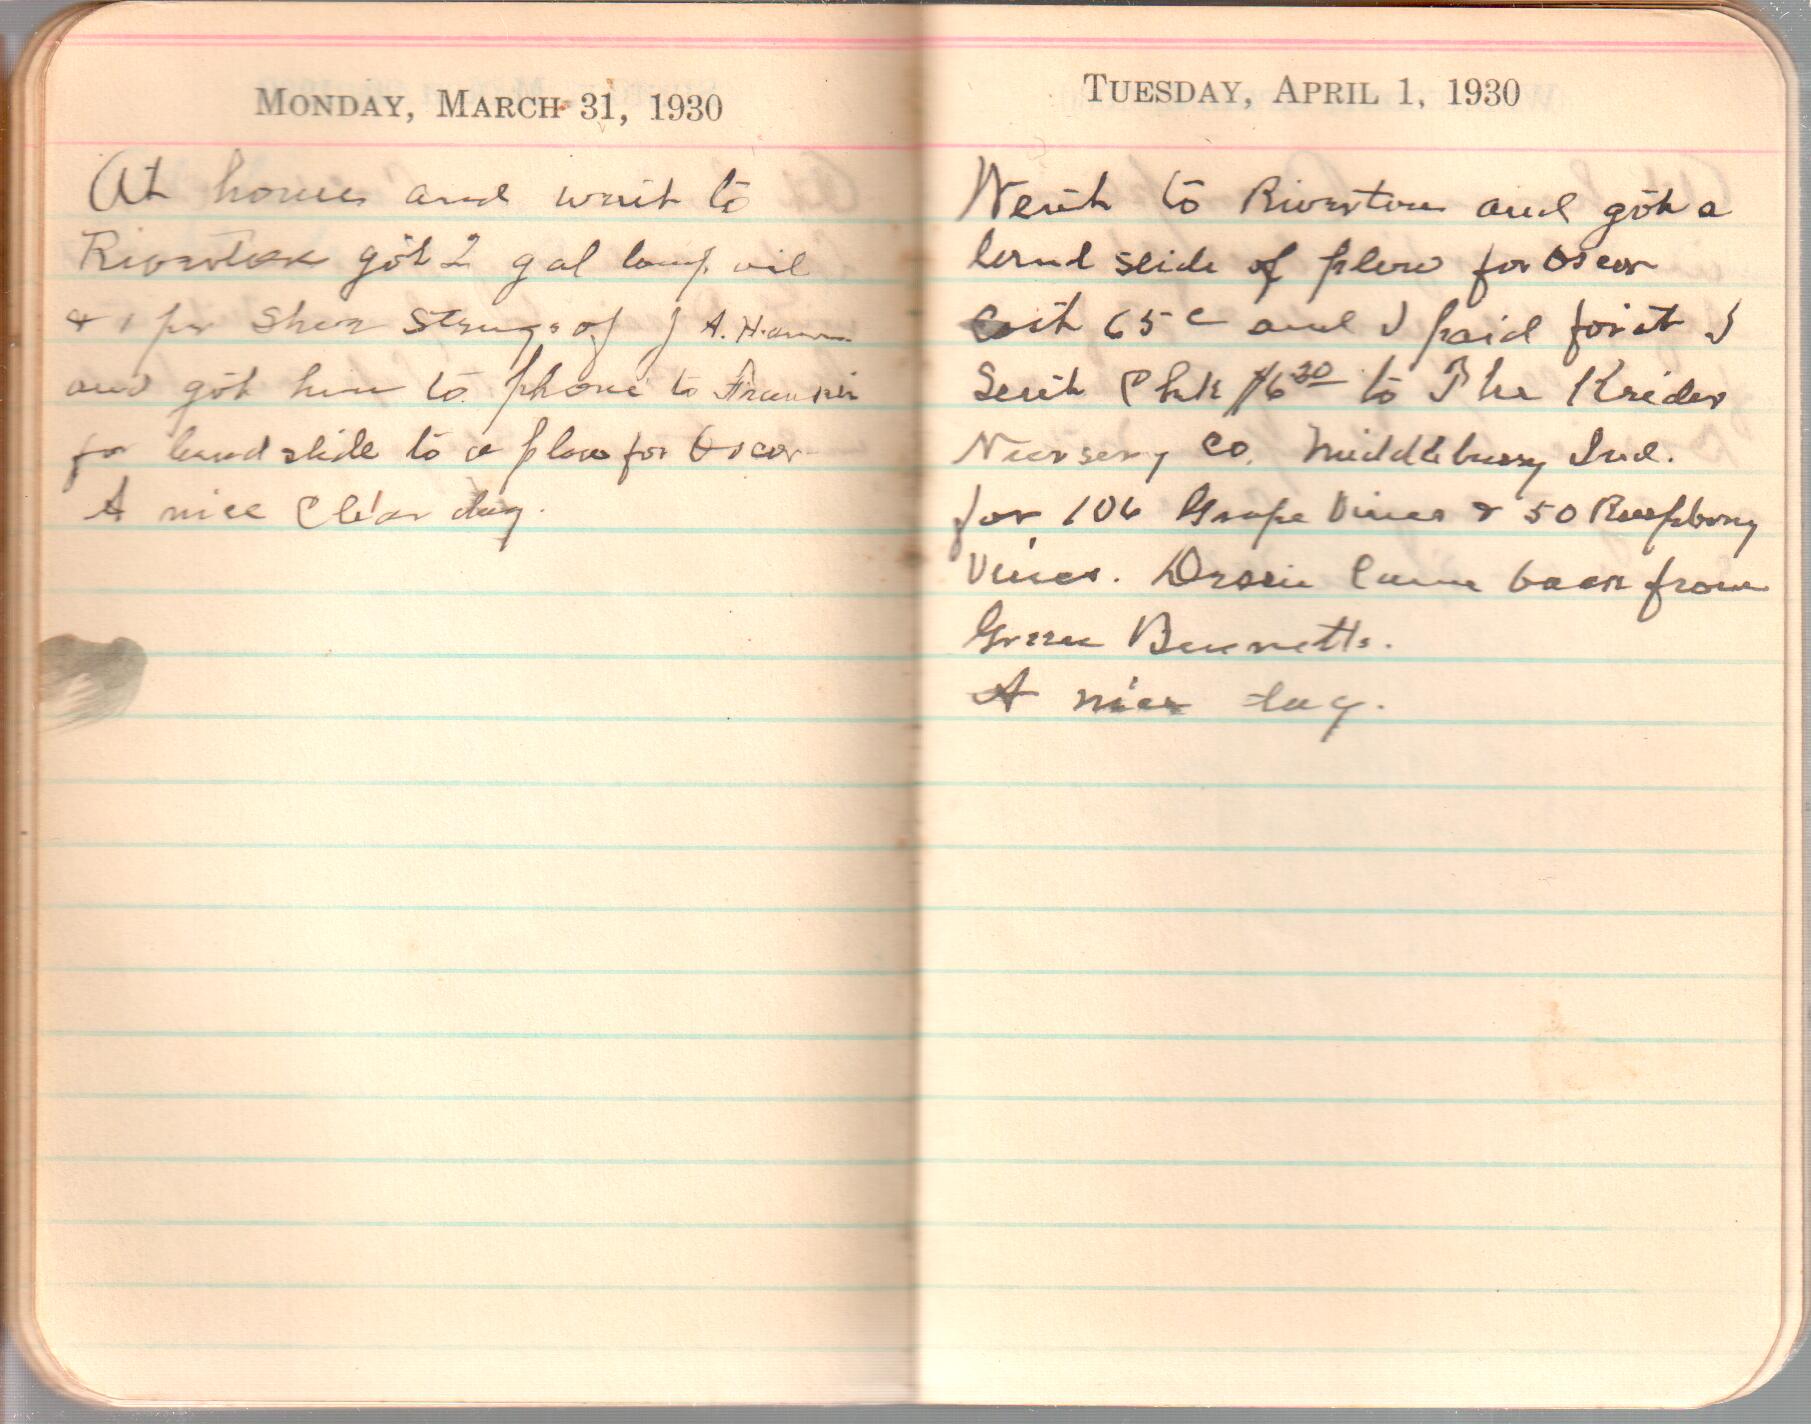 Monday, March 31, 1930
At home and went to
Riverton got 2 gal lamp oil
& 1 pr Shoe Strings of J A.
and got him to phone to
for land slide to a plow for Oscar
A nice Clear day.
Tuesday, April 1, 1930
Went to Riverton and got a
land slide of plow for Oscar
Cost 65c and I paid for it I
Sent Chk $6 20 to The Krider
Nursery Co. Middlebury Ind.
for 106 Grape Vines & 50 Raspbery
Vines. came back from
Green Bennetts.
A nice day.